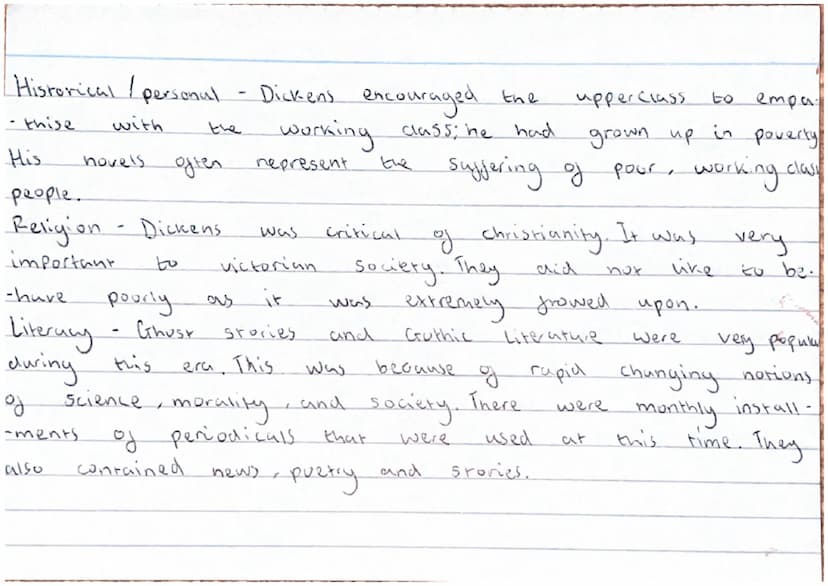 Historical / personal - Dickens encouraged the upperclass to empa-
-thise with the working class; he had grown up in poverty
His novels often represent the suffering of poor, working class
people.
Religion - Dickens was critical of christianity. It was very
important to victorian society. They did not like to be-
-have poorly as it was extremely frowed upon.
Literacy - Ghost stories and Gothic literature were very popular
during this era. This was because of rapid changing notions
of science, morality, and society. There were monthly install-
-ments of periodicals that were used at this time. They
also contained news, poetry and stories.